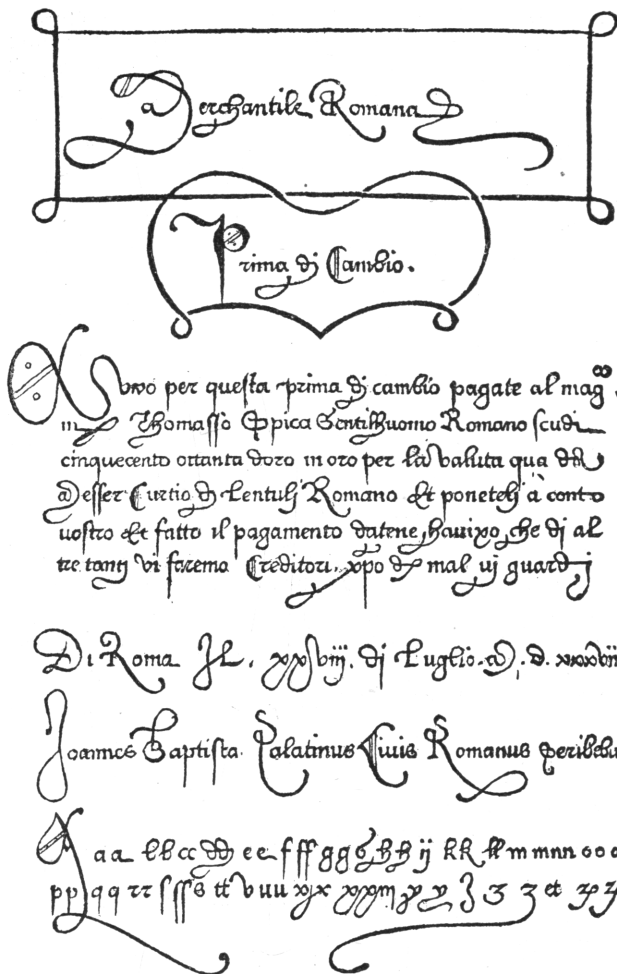 Merchantile Romana
Prima di Cambio.
per questa prima di cambio pagate al mag^co
Thomasso Spica Gentilhuomo Romano scudi
cinquecento ottanta doro in oro per la valuta qua da
Messer Curtio di Lentuli Romano Et poneteli à conto
vostro Et fatto il pagamento datene haviso che di al
tre tanti vi farema Creditori. xpo di mal vi guardi
Di Roma IL. xxviii. di Luglio. M. D.
Joannes Baptista Palatinus Civis Romanus
A aa bb cc dd ee f ff g g h h ij kk ll m m n n o o
pp qq rr ſ ſſ s tt v uu x x y y z 3 et